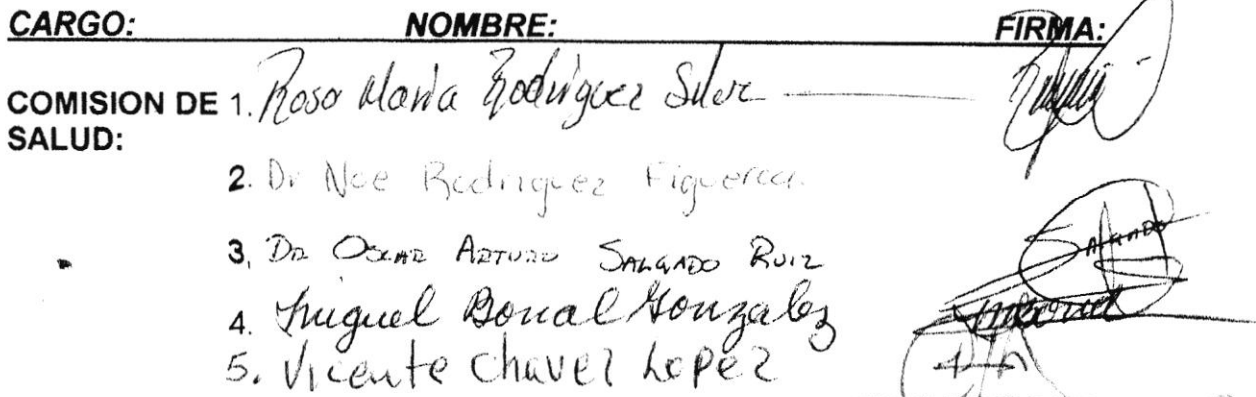 CARGO: NOMBRE: FIRMA:
COMISION DE 1. Rosa Maria Rodriguez Silva
SALUD:
2. Dr Noe Rodriguez Figueroa.
3. Dr Oscar Arturo Salgado Ruiz SALGADO
4. Miguel Bonal Gonzalez
5. Vicente Chavez Lopez